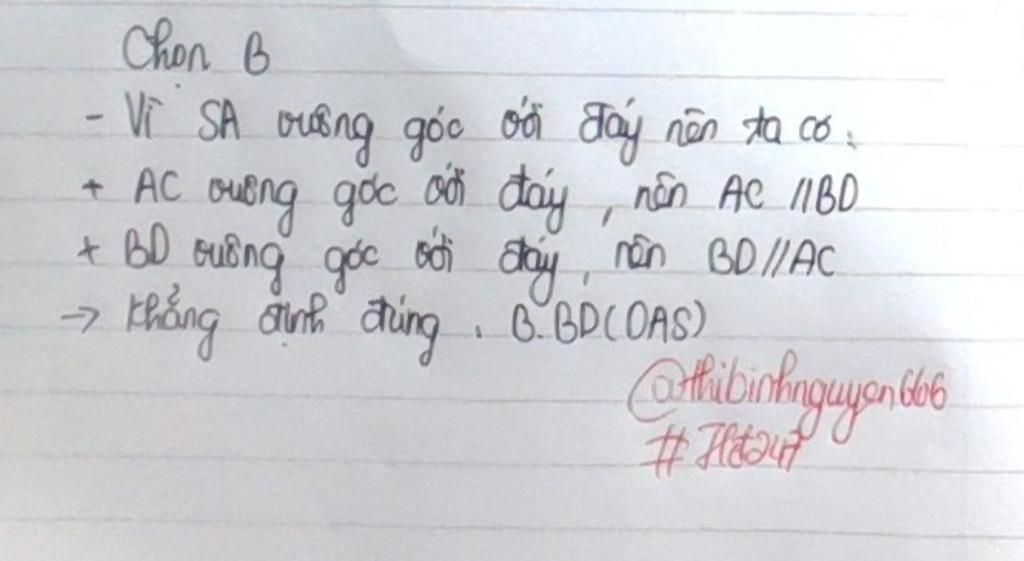 Chọn B
- Vì SA vuông góc với đáy nên ta có:
+ AC vuông góc với đáy, nên AC //BD
+ BD vuông góc với đáy, nên BD//AC
→ Khẳng định đúng. B. BD(OAS)
@thibinhnguyen666